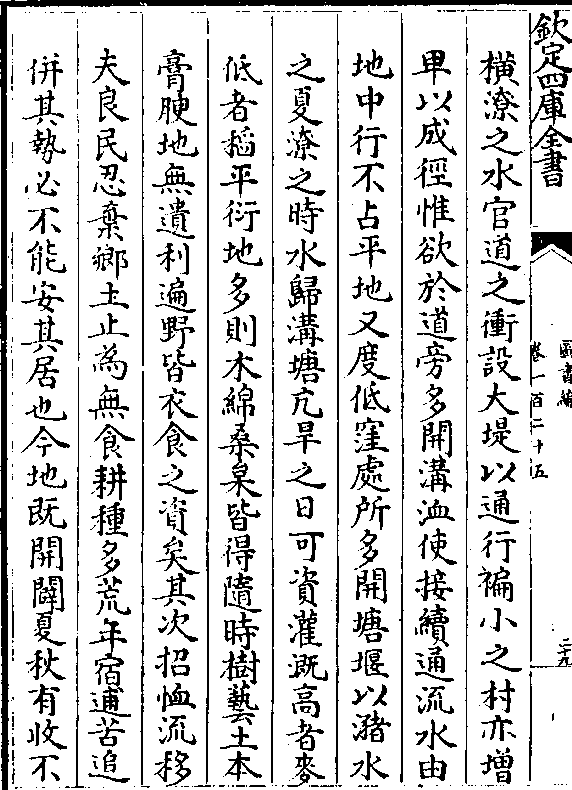 欽定四庫全書
圖書編
卷一百二十五
二十九
橫潦之水官道之衝設大堤以通行褊小之村亦增
卑以成徑惟欲於道旁多開溝洫使接續通流水由
地中行不占平地又度低窪處所多開塘堰以瀦水
之夏潦之時水歸溝塘亢旱之日可資灌溉高者麥
低者稻平衍地多則木綿桑枲皆得隨時樹藝土本
膏腴地無遺利遍野皆衣食之資矣其次招恤流移
夫良民忍棄鄉土止為無食耕種多荒年宿逋苦追
併其勢必不能安其居也今地既開闢夏秋有收不